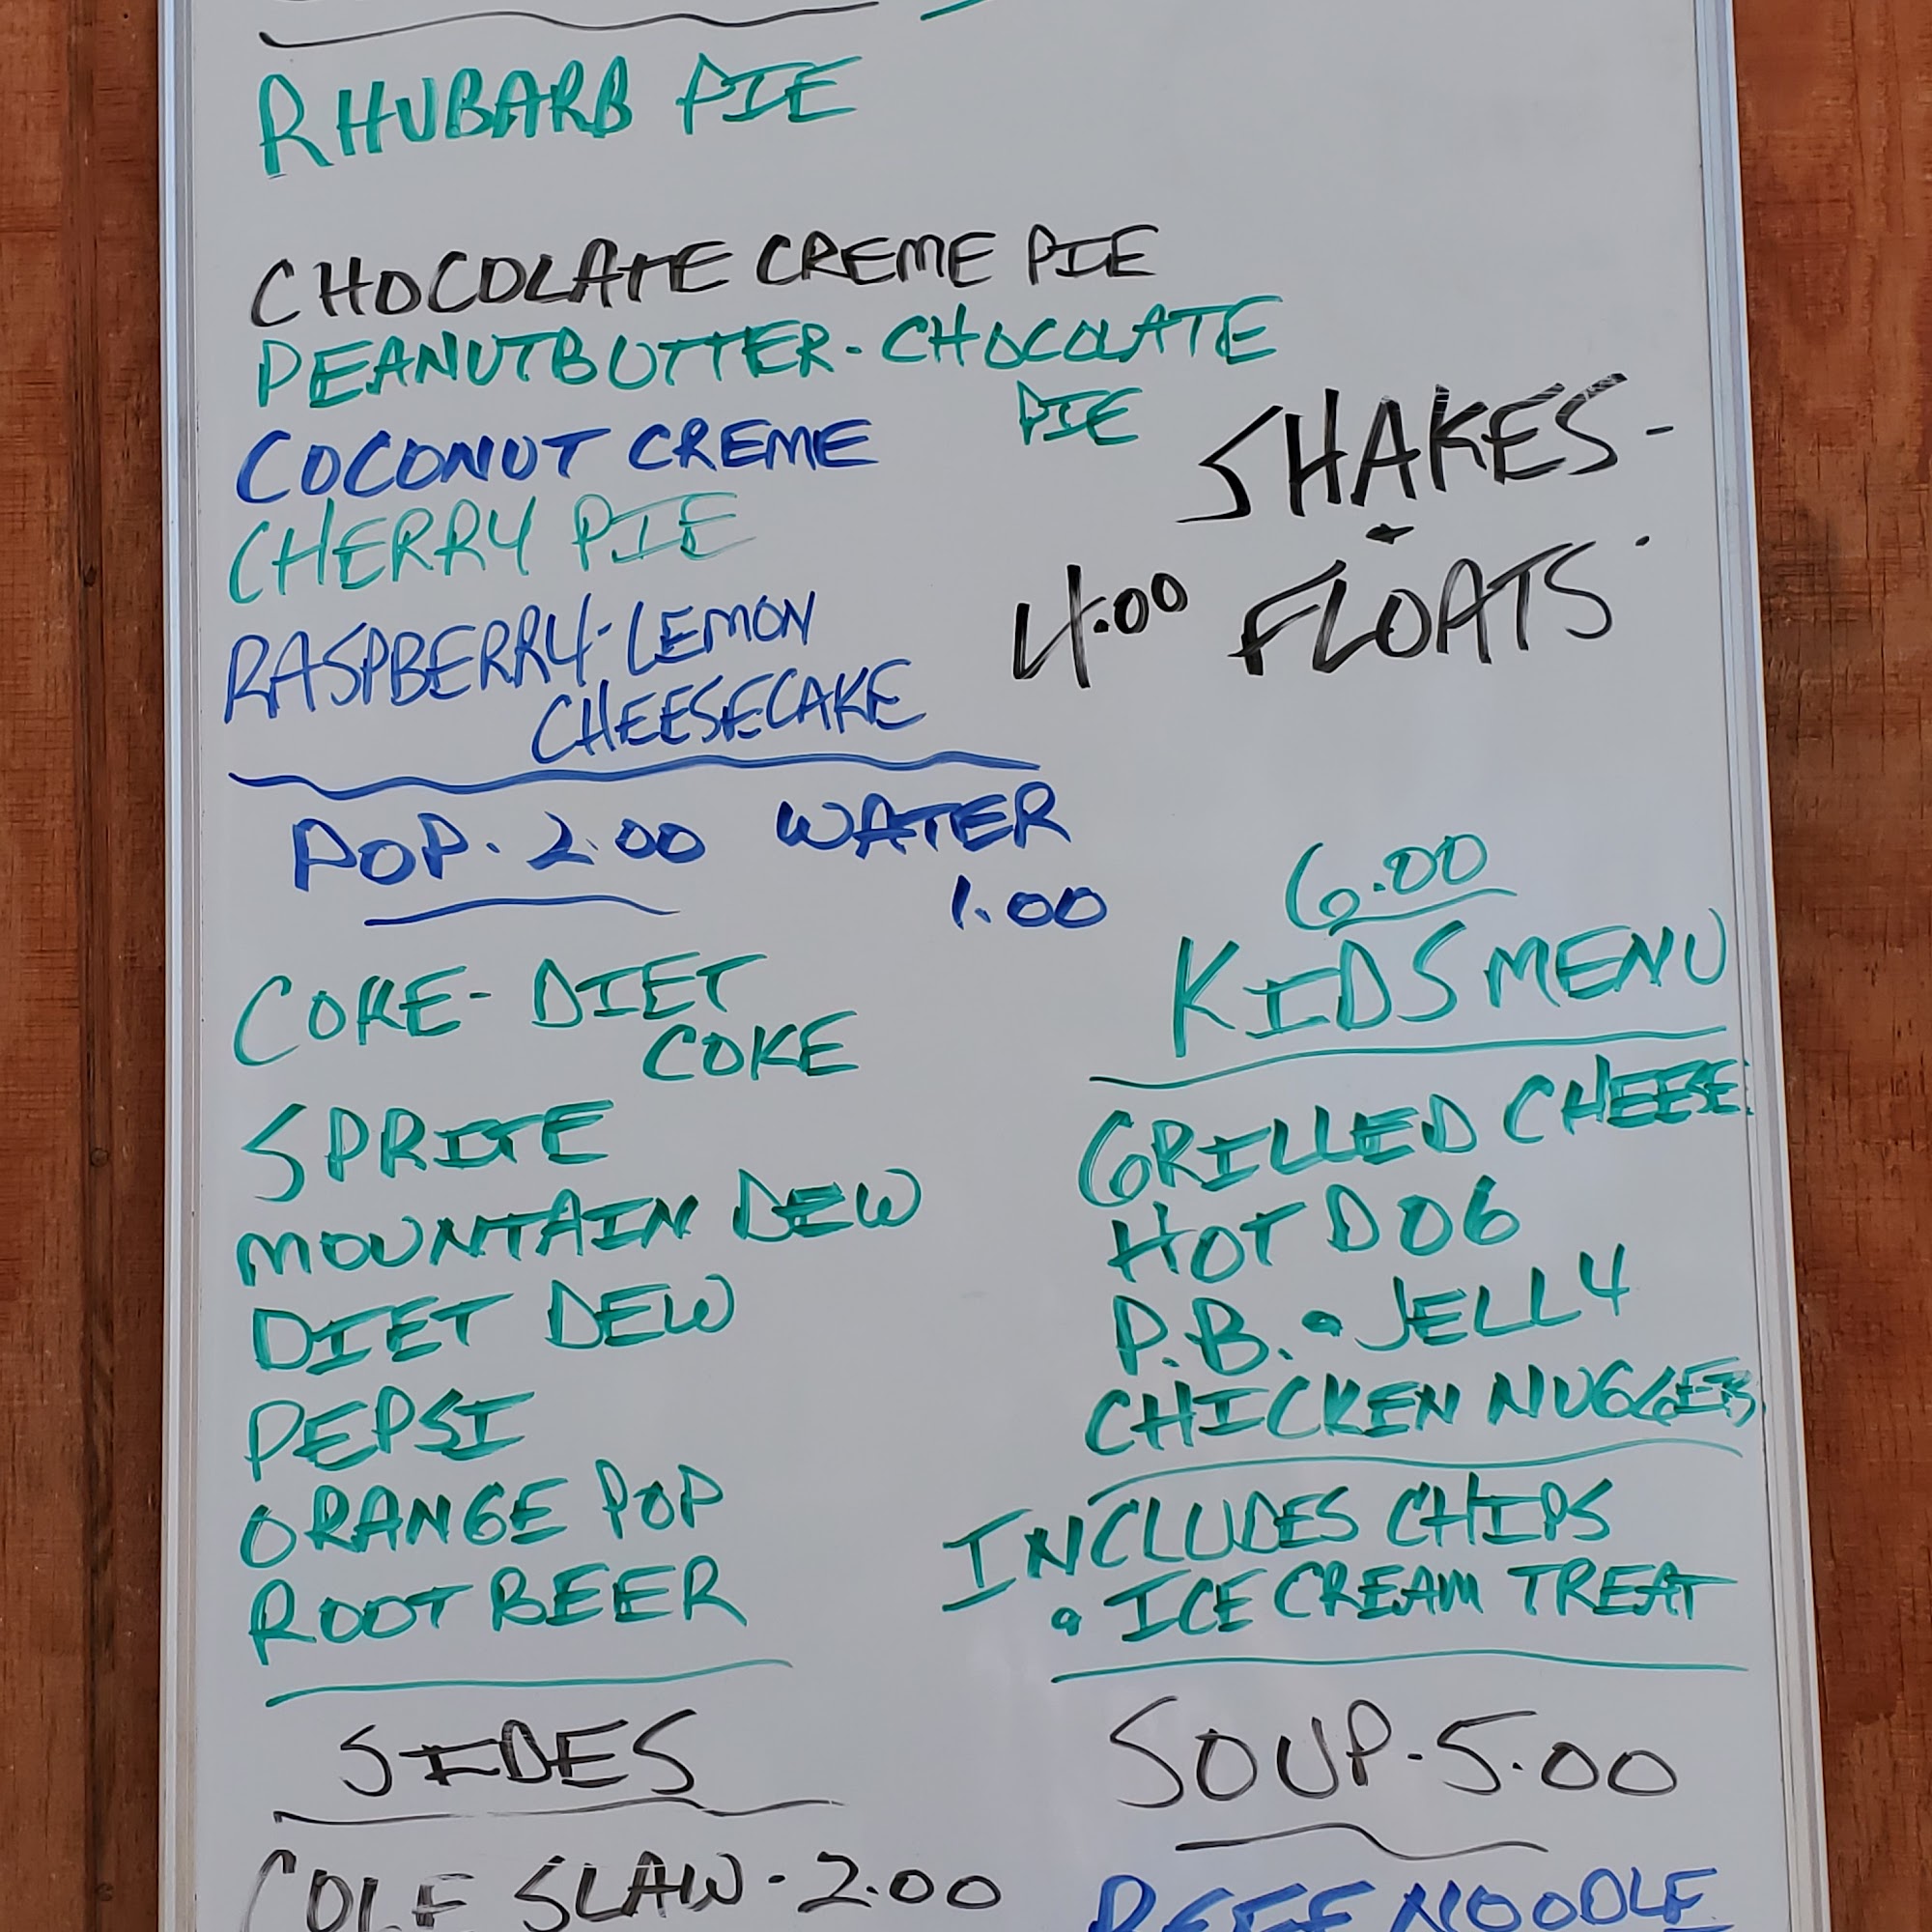 RHUBARB PIE
CHOCOLATE CREME PIE
PEANUTBUTTER-CHOCOLATE
PIE
COCONUT CREME
CHERRY PIE
RASPBERRY-LEMON
CHEESECAKE
SHAKES-
4.00 FLOATS
POP. 2.00 WATER
1.00
COKE- DIET
COKE
SPRITE
MOUNTAIN DEW
DIET DEW
PEPSI
ORANGE POP
ROOT BEER
6.00
KIDS MENU
GRILLED CHEESE
HOT DOG
P.B. & JELLY
CHICKEN NUGGETS
INCLUDES CHIPS
& ICE CREAM TREAT
SIDES
COLE SLAW-2.00
SOUP-5.00
BEEF NOODLE